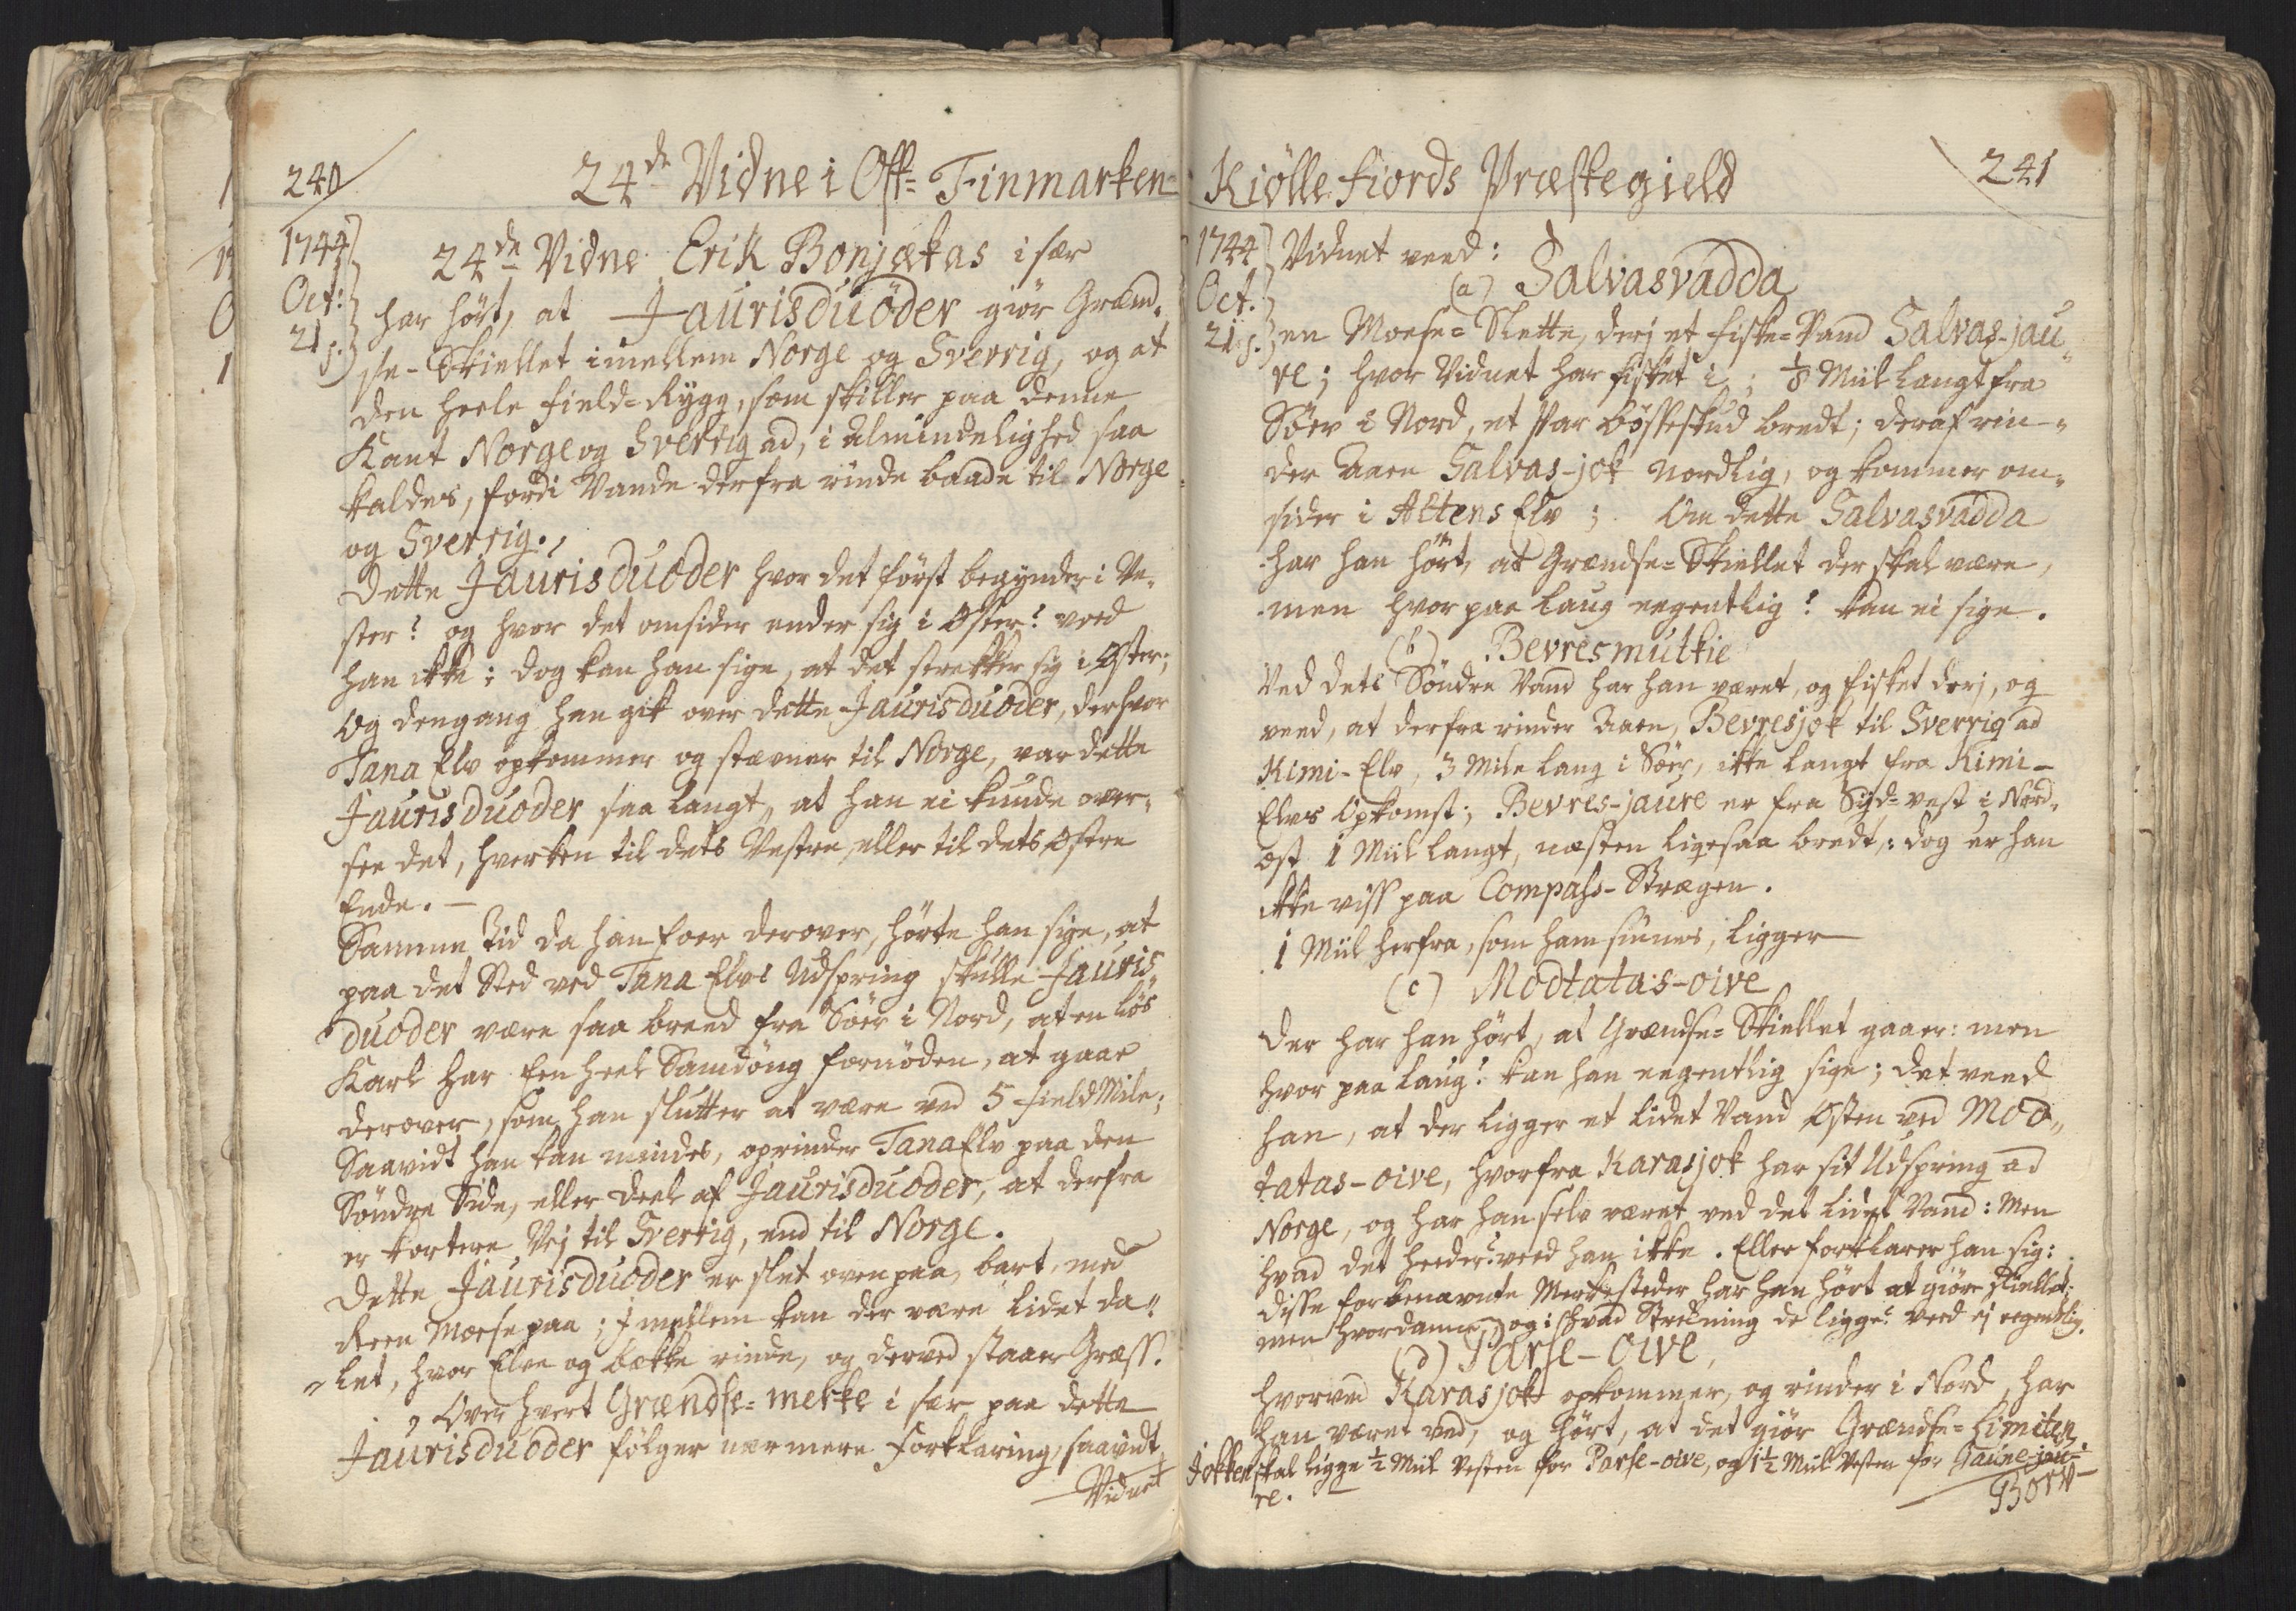 240
24de Vidne i Ost-Finmarken
1744
Oct:
21 s.
24de Vidne Erik Bonjakas i sær
har hört, at Jaurisduöder giör Grænd-
se-Skiellet imellem Norge og Sverrig, og at
den heele field-Rygg, som skiller paa denne
Kant Norge og Sverrig ad, i Almindelighed saa
kaldes, fordi Vande derfra rinde baade til Norge
og Sverrig.,
Dette Jaurisduoder hvor det först begynder i Ve-
ster? og hvor det omsider ender sig i Öster? veed
han ikke; dog kan han sige, at det strekker sig i Öster;
Og dengang han gik over dette Jaurisduoder, derhvor
Tana Elv opkommer og stævner til Norge, var dette
Jaurisduoder saa langt, at han ei kunde over-
see det, hverken til dets Vestre, eller til dets östre
Ende. —
Samme tid da han foer derover, hörte han sige, at
paa det Sted ved Tana Elvs Udspring skulle Jauris-
duoder være saa breed fra Söer i Nord, at en lös
Karl har Een heel Samdöng fornöden, at gaae
derover, som han slutter at være ved 5 field Mile;
Saavidt han kan mindes, oprinder Tana Elv paa den
Söndre Side, eller Deel af Jaurisduoder, at derfra
er kortere Vej til Sverrig, end til Norge.
Dette Jaurisduoder er slet oven paa, bart, med
Reen Moese paa; j mellem kan der være lidet da-
let, hvor Elve og bække rinde, og derved staaer Græss.
Over hvert Grændse-mekke i sær paa dette
Jaurisduoder fölger nærmere Forklaring, saavidt
Vidnet
Kiölle fiords Præstegield
241
1744
Oct.
21 s.
Vidnet veed:
(a) Salvasvadda
en Moese-Slette, derj et fiske-Vand Salvas-jau-
re; hvor Vidnet har fisket i; 1/8 Miil langt fra
Söer i Nord, et Par bösseskud bredt; deraf rin-
der Aaen Salvas-jok Nordlig, og kommer om-
sider i Altens Elv; Om dette Salvasvadda
har han hört, at Grændse-Skiellet der skal være,
men hvor paa laug eegentlig? kan ei sige.
(b) Bevresmutkie
Ved dets Söndre Vand har han været, og fisket derj, og
veed, at derfra rinder Aaen, Bevresjok til Sverrig ad
Kimi-Elv, 3 Mile lang i Söer, ikke langt fra Kimi-
Elvs Opkomst; Bevres-jaure er fra Syd-vest i Nord-
ost 1 Miil langt, næsten ligesaa bredt,: dog er han
ikke viss paa Compass-Strægen.
1 Miil herfra, som ham siunes, ligger
(c) Modtatas-oive
Der har han hört, at Grændse-Skiellet gaaer: men
hvor paa laug? kan han eegentlig sige; det veed
han, at der ligger et lidet Vand Östen ved Mod-
tatas-oive, hvorfra Karasjok har sit Udspring ad
Norge, og har han selv været ved det lidet Vand: Men
hvad det heeder? veed han ikke. Eller forklarer han sig:
disse forbenævnte Merkesteder har han hört at giöre skiellet;
men hvordanne, og i hvad Strekning de ligge? veed ej eegentlig.
(d) Parse-oive,
hvorved Karasjok opkommer, og rinder i Nord, har
han været ved, og hört, at det giör Grændse-Limiten.
Jokken skal ligge 1/2 Miil Vesten for Parse-oive, og 1 1/2 Miil Vesten for Gaune-jau-
re.